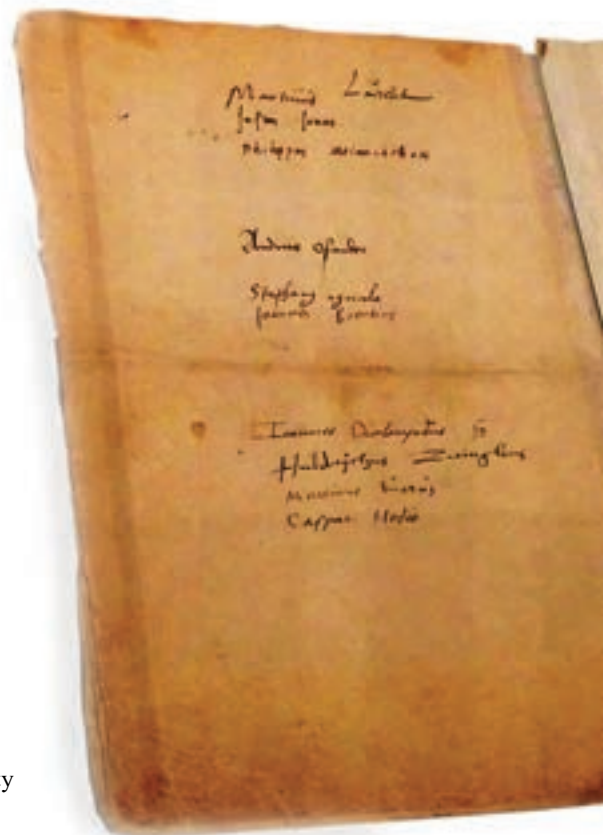 Martinus Luther
Justus Jonas
Philippus Melanchthon
Andreas Osiander
Stephanus Agricola
Joannes Brentius
Ioannes Oecolampadius
Huldrychus Zuinglius
Martinus Bucerus
Caspar Hedio
y